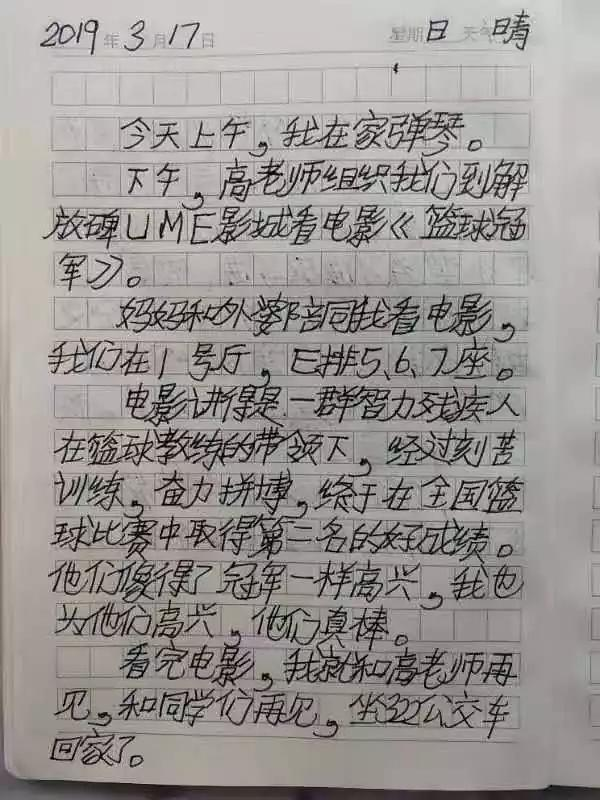 2019年3月17日 星期日 天气晴
今天上午,我在家弹琴。
下午,高老师组织我们到解
放碑UME影城看电影《篮球冠
军》。
妈妈和外婆陪同我看电影,
我们在1号厅,E排5、6、7座。
电影讲得是一群智力残疾人
在篮球教练的带领下,经过刻苦
训练,奋力拼博,终于在全国篮
球比赛中取得第二名的好成绩。
他们像得了冠军一样高兴,我也
为他们高兴,他们真棒。
看完电影,我就和高老师再
见,和同学们再见,坐322公交车
回家了。